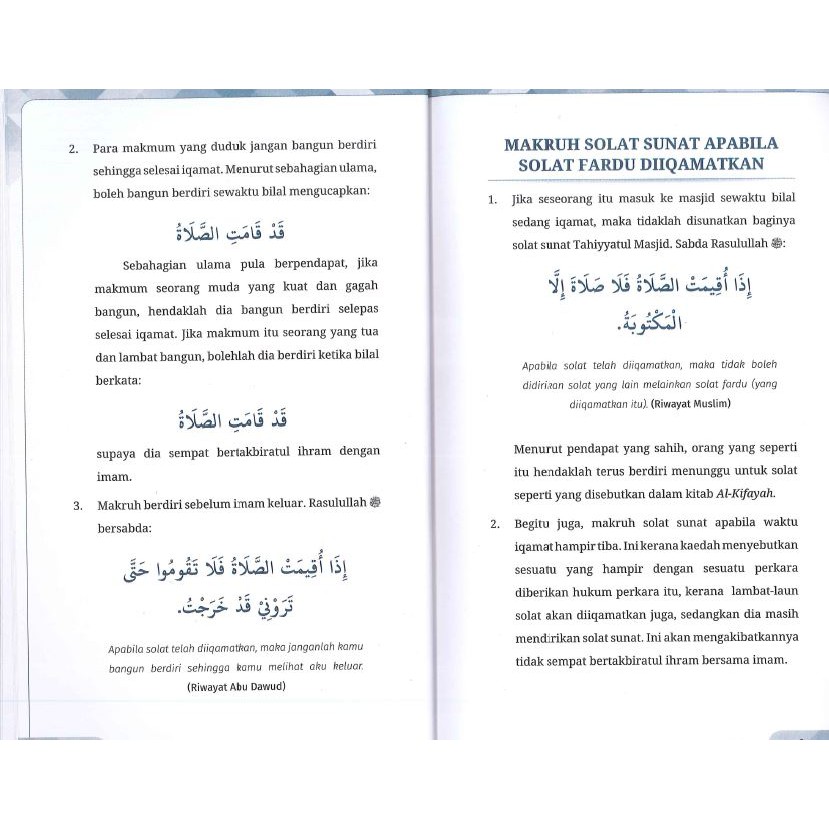 2. Para makmum yang duduk jangan bangun berdiri
sehingga selesai iqamat. Menurut sebahagian ulama,
boleh bangun berdiri sewaktu bilal mengucapkan:
قَدْ قَامَتِ الصَّلَاةُ
Sebahagian ulama pula berpendapat, jika
makmum seorang muda yang kuat dan gagah
bangun, hendaklah dia bangun berdiri selepas
selesai iqamat. Jika makmum itu seorang yang tua
dan lambat bangun, bolehlah dia berdiri ketika bilal
berkata:
قَدْ قَامَتِ الصَّلَاةُ
supaya dia sempat bertakbiratul ihram dengan
imam.
3. Makruh berdiri sebelum imam keluar. Rasulullah ﷺ
bersabda:
إِذَا أُقِيمَتْ الصَّلَاةُ فَلَا تَقُومُوا حَتَّى
تَرَوْنِيْ قَدْ خَرَجْتُ.
Apabila solat telah diiqamatkan, maka janganlah kamu
bangun berdiri sehingga kamu melihat aku keluar.
(Riwayat Abu Dawud)
MAKRUH SOLAT SUNAT APABILA
SOLAT FARDU DIIQAMATKAN
1. Jika seseorang itu masuk ke masjid sewaktu bilal
sedang iqamat, maka tidaklah disunatkan baginya
solat sunat Tahiyyatul Masjid. Sabda Rasulullah ﷺ:
إِذَا أُقِيمَتْ الصَّلَاةُ فَلَا صَلَاةَ إِلَّا
الْمَكْتُوبَةُ.
Apabila solat telah diiqamatkan, maka tidak boleh
didirikan solat yang lain melainkan solat fardu (yang
diiqamatkan itu). (Riwayat Muslim)
Menurut pendapat yang sahih, orang yang seperti
itu hendaklah terus berdiri menunggu untuk solat
seperti yang disebutkan dalam kitab Al-Kifayah.
2. Begitu juga, makruh solat sunat apabila waktu
iqamat hampir tiba. Ini kerana kaedah menyebutkan
sesuatu yang hampir dengan sesuatu perkara
diberikan hukum perkara itu, kerana lambat-laun
solat akan diiqamatkan juga, sedangkan dia masih
mendirikan solat sunat. Ini akan mengakibatkannya
tidak sempat bertakbiratul ihram bersama imam.